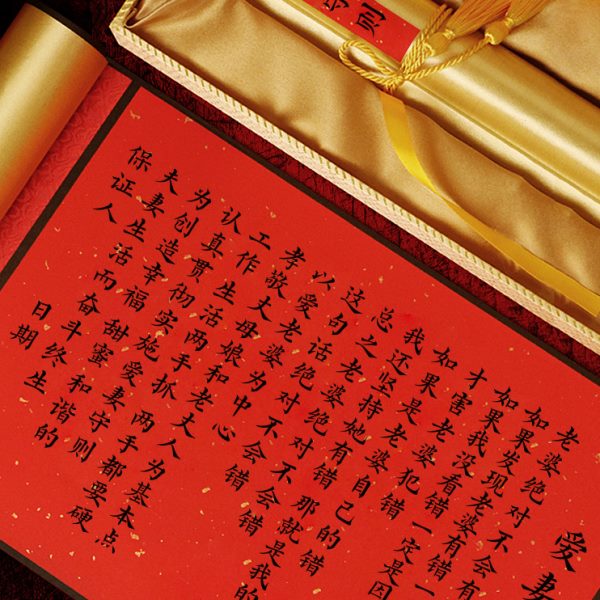 爱妻
老婆绝对不会有
如果发现老婆有错一
如果我没看错一定是因
才害老婆犯错
如果是老婆自己的错
我还坚持她有错那就是我的
总之老婆绝对不会错
这句话绝对不会错
以爱老婆为中心
孝敬丈母娘和老丈人为基本点
工作生活两手抓两手都要硬
认真贯彻实施爱妻守则
为创造幸福甜蜜和谐的
夫妻生活而奋斗终生
保证人
日期